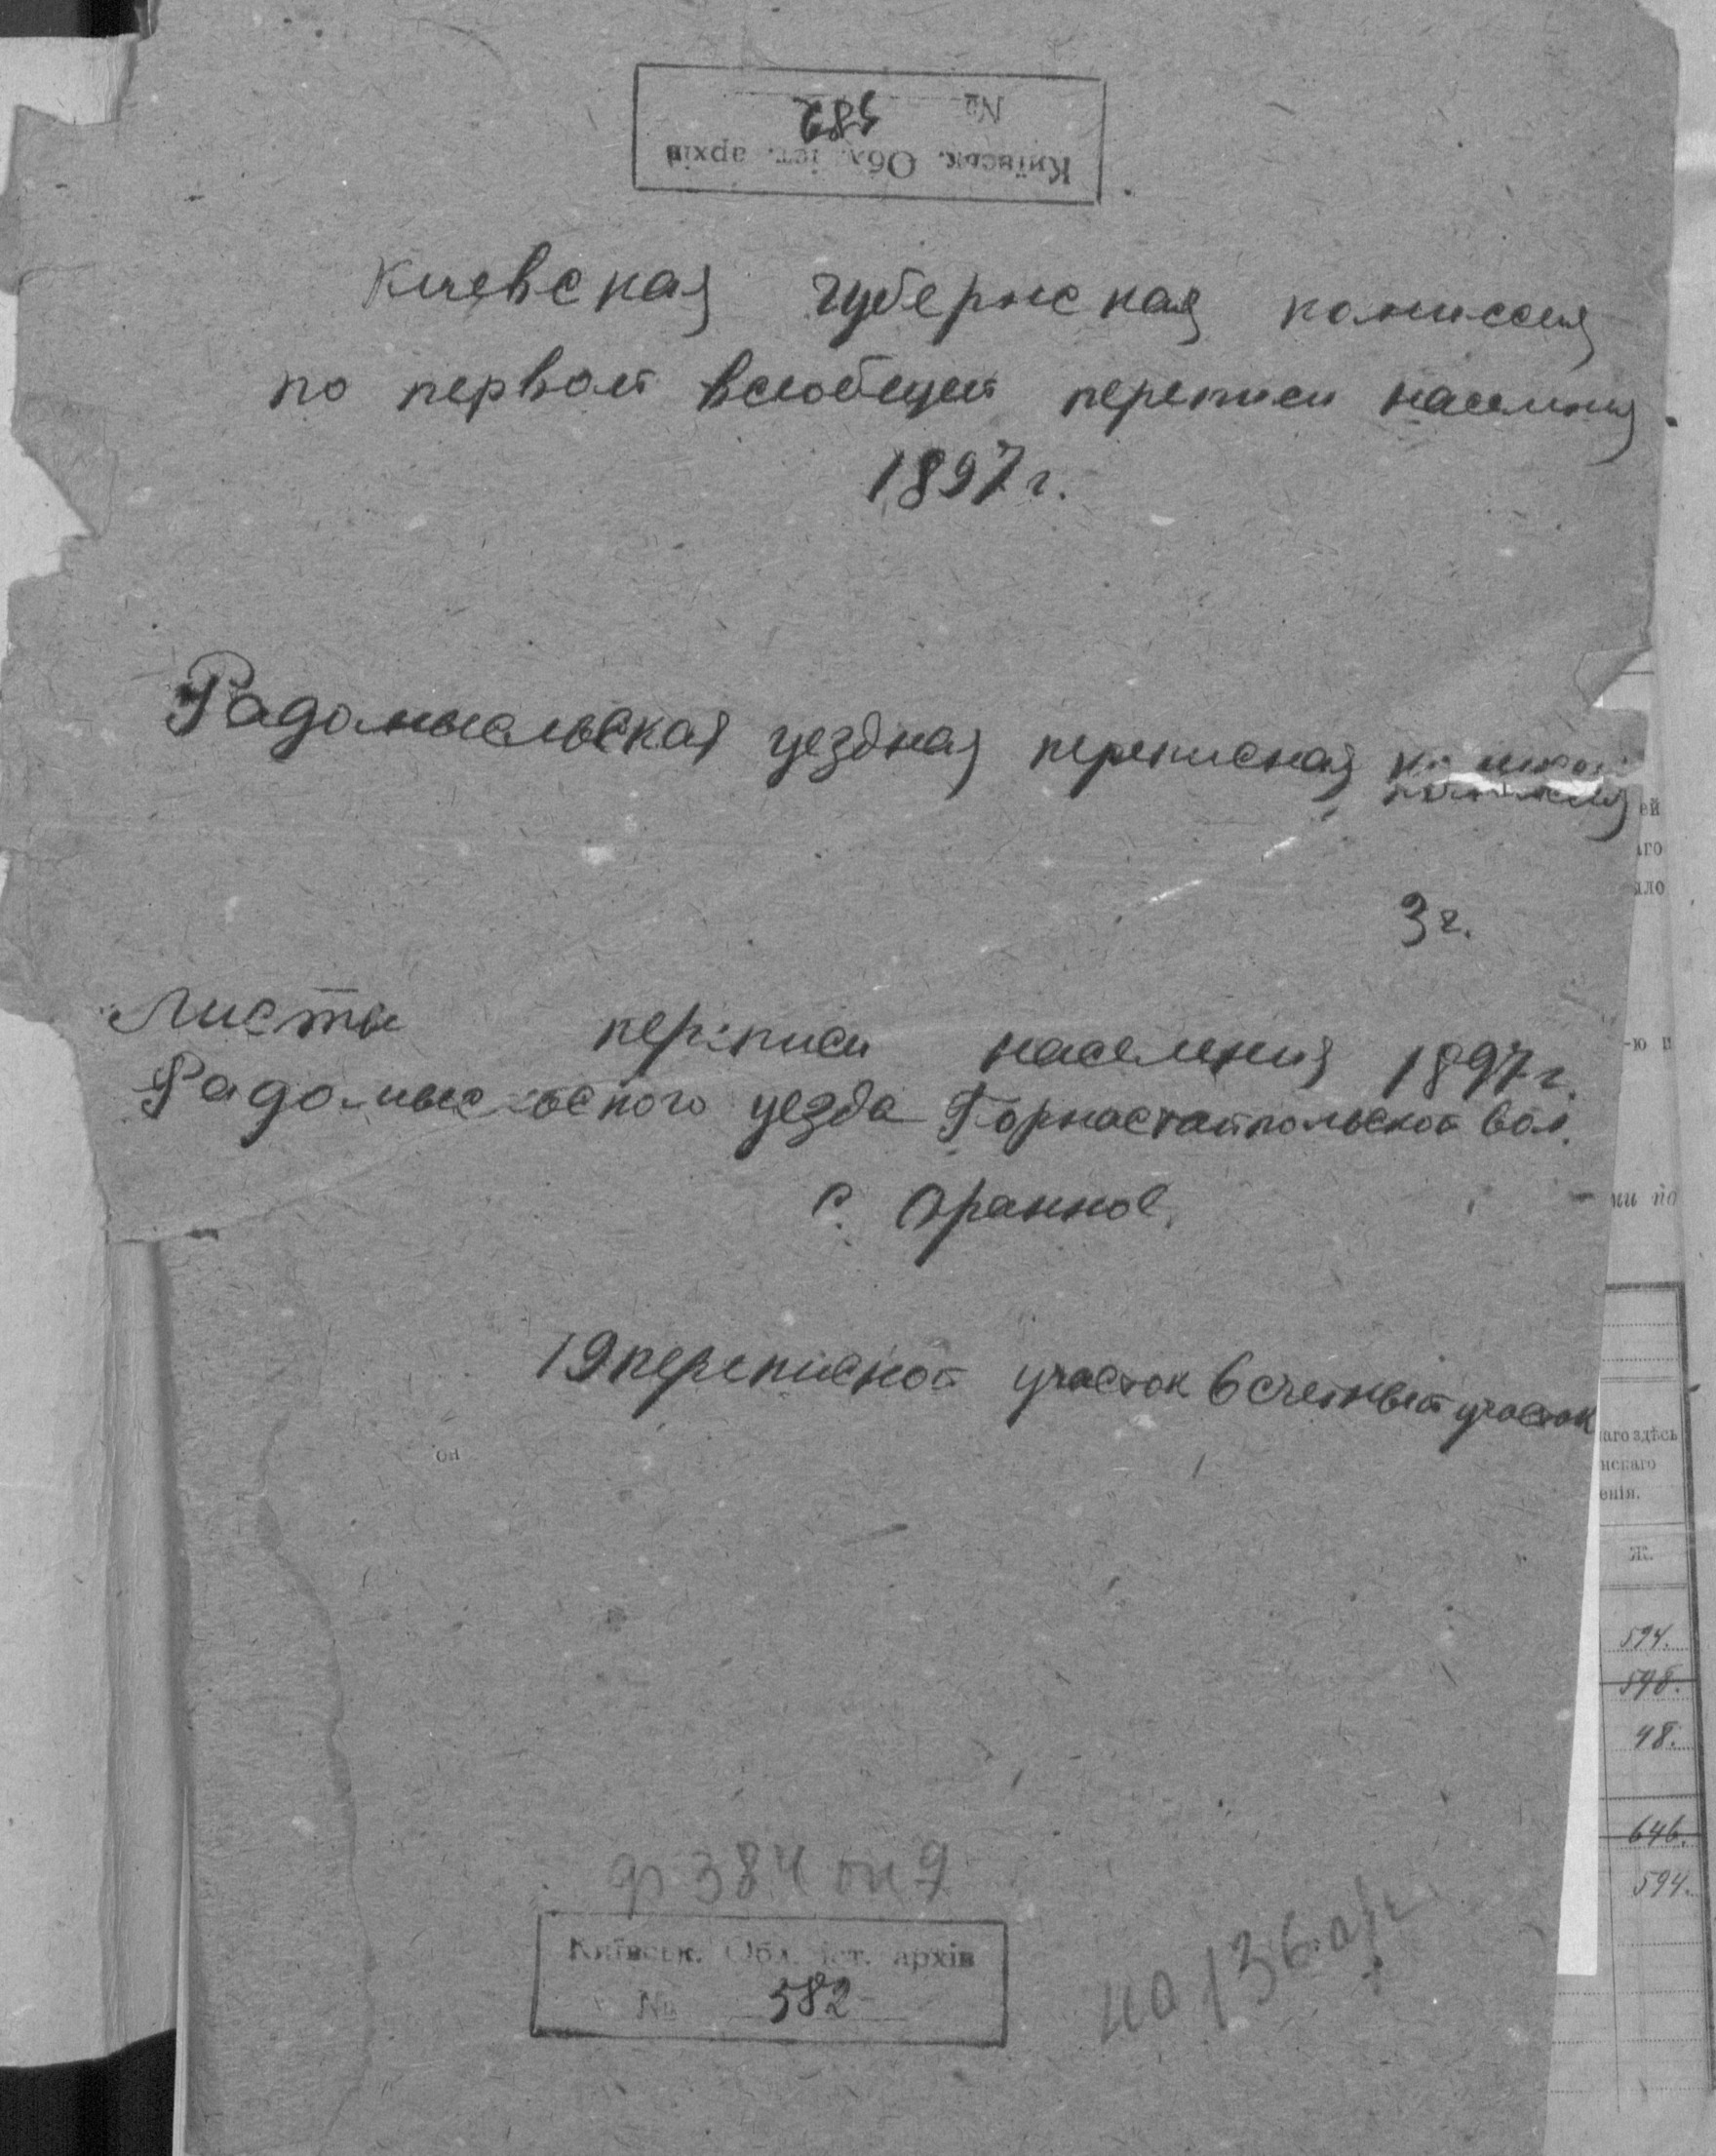 № 582
Київськ. Обл. іст. архів
Киевская губернская комиссия
по первой всеобщей переписи населения
1897 г.
Радомысльская уездная переписная комиссия
3 г.
Листы переписи населения 1897 г.
Радомысльского уезда Горностайпольской вол.
с. Оранное.
19 переписной участок 6 счетный участок
ф 384 оп 9
Київськ. Обл. іст. архів
№ 582
на 136 арк
ей
аго
ало
-ю и
ми по
аго здѣсь
нскаго
енія.
Ж.
594.
598.
48.
646.
594.